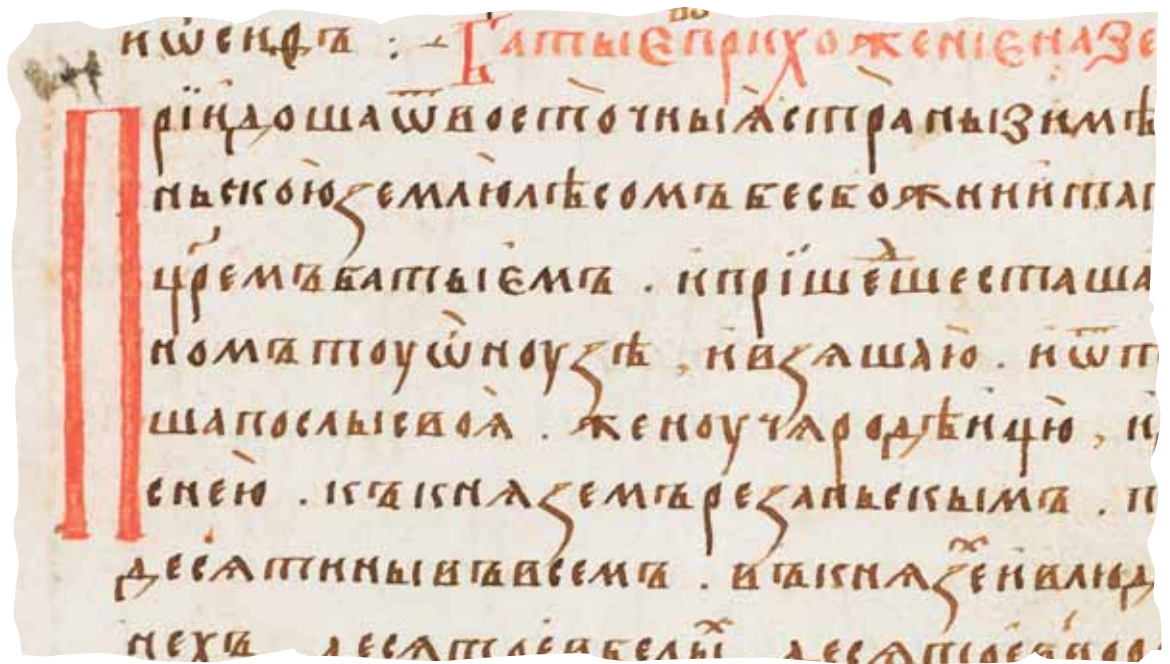 иѡсифъ : ~ Батыево прихожение на Зе
Прїидоша ѿ восточныѧ страны зимѣ
ньскою землю лѣсомъ бесбожнии тат
цр҃емъ батыіемъ . и прїшедше сташа
номъ тоу ѡноузѣ , и взяша ю . и ѿ п
ша послы своѧ . женоу чародѣицю , и
с нею . къ княземъ резаньскымъ . п
десѧтины въ всемъ . въ князех и в люд
нехъ десѧтое в белых десѧтое в